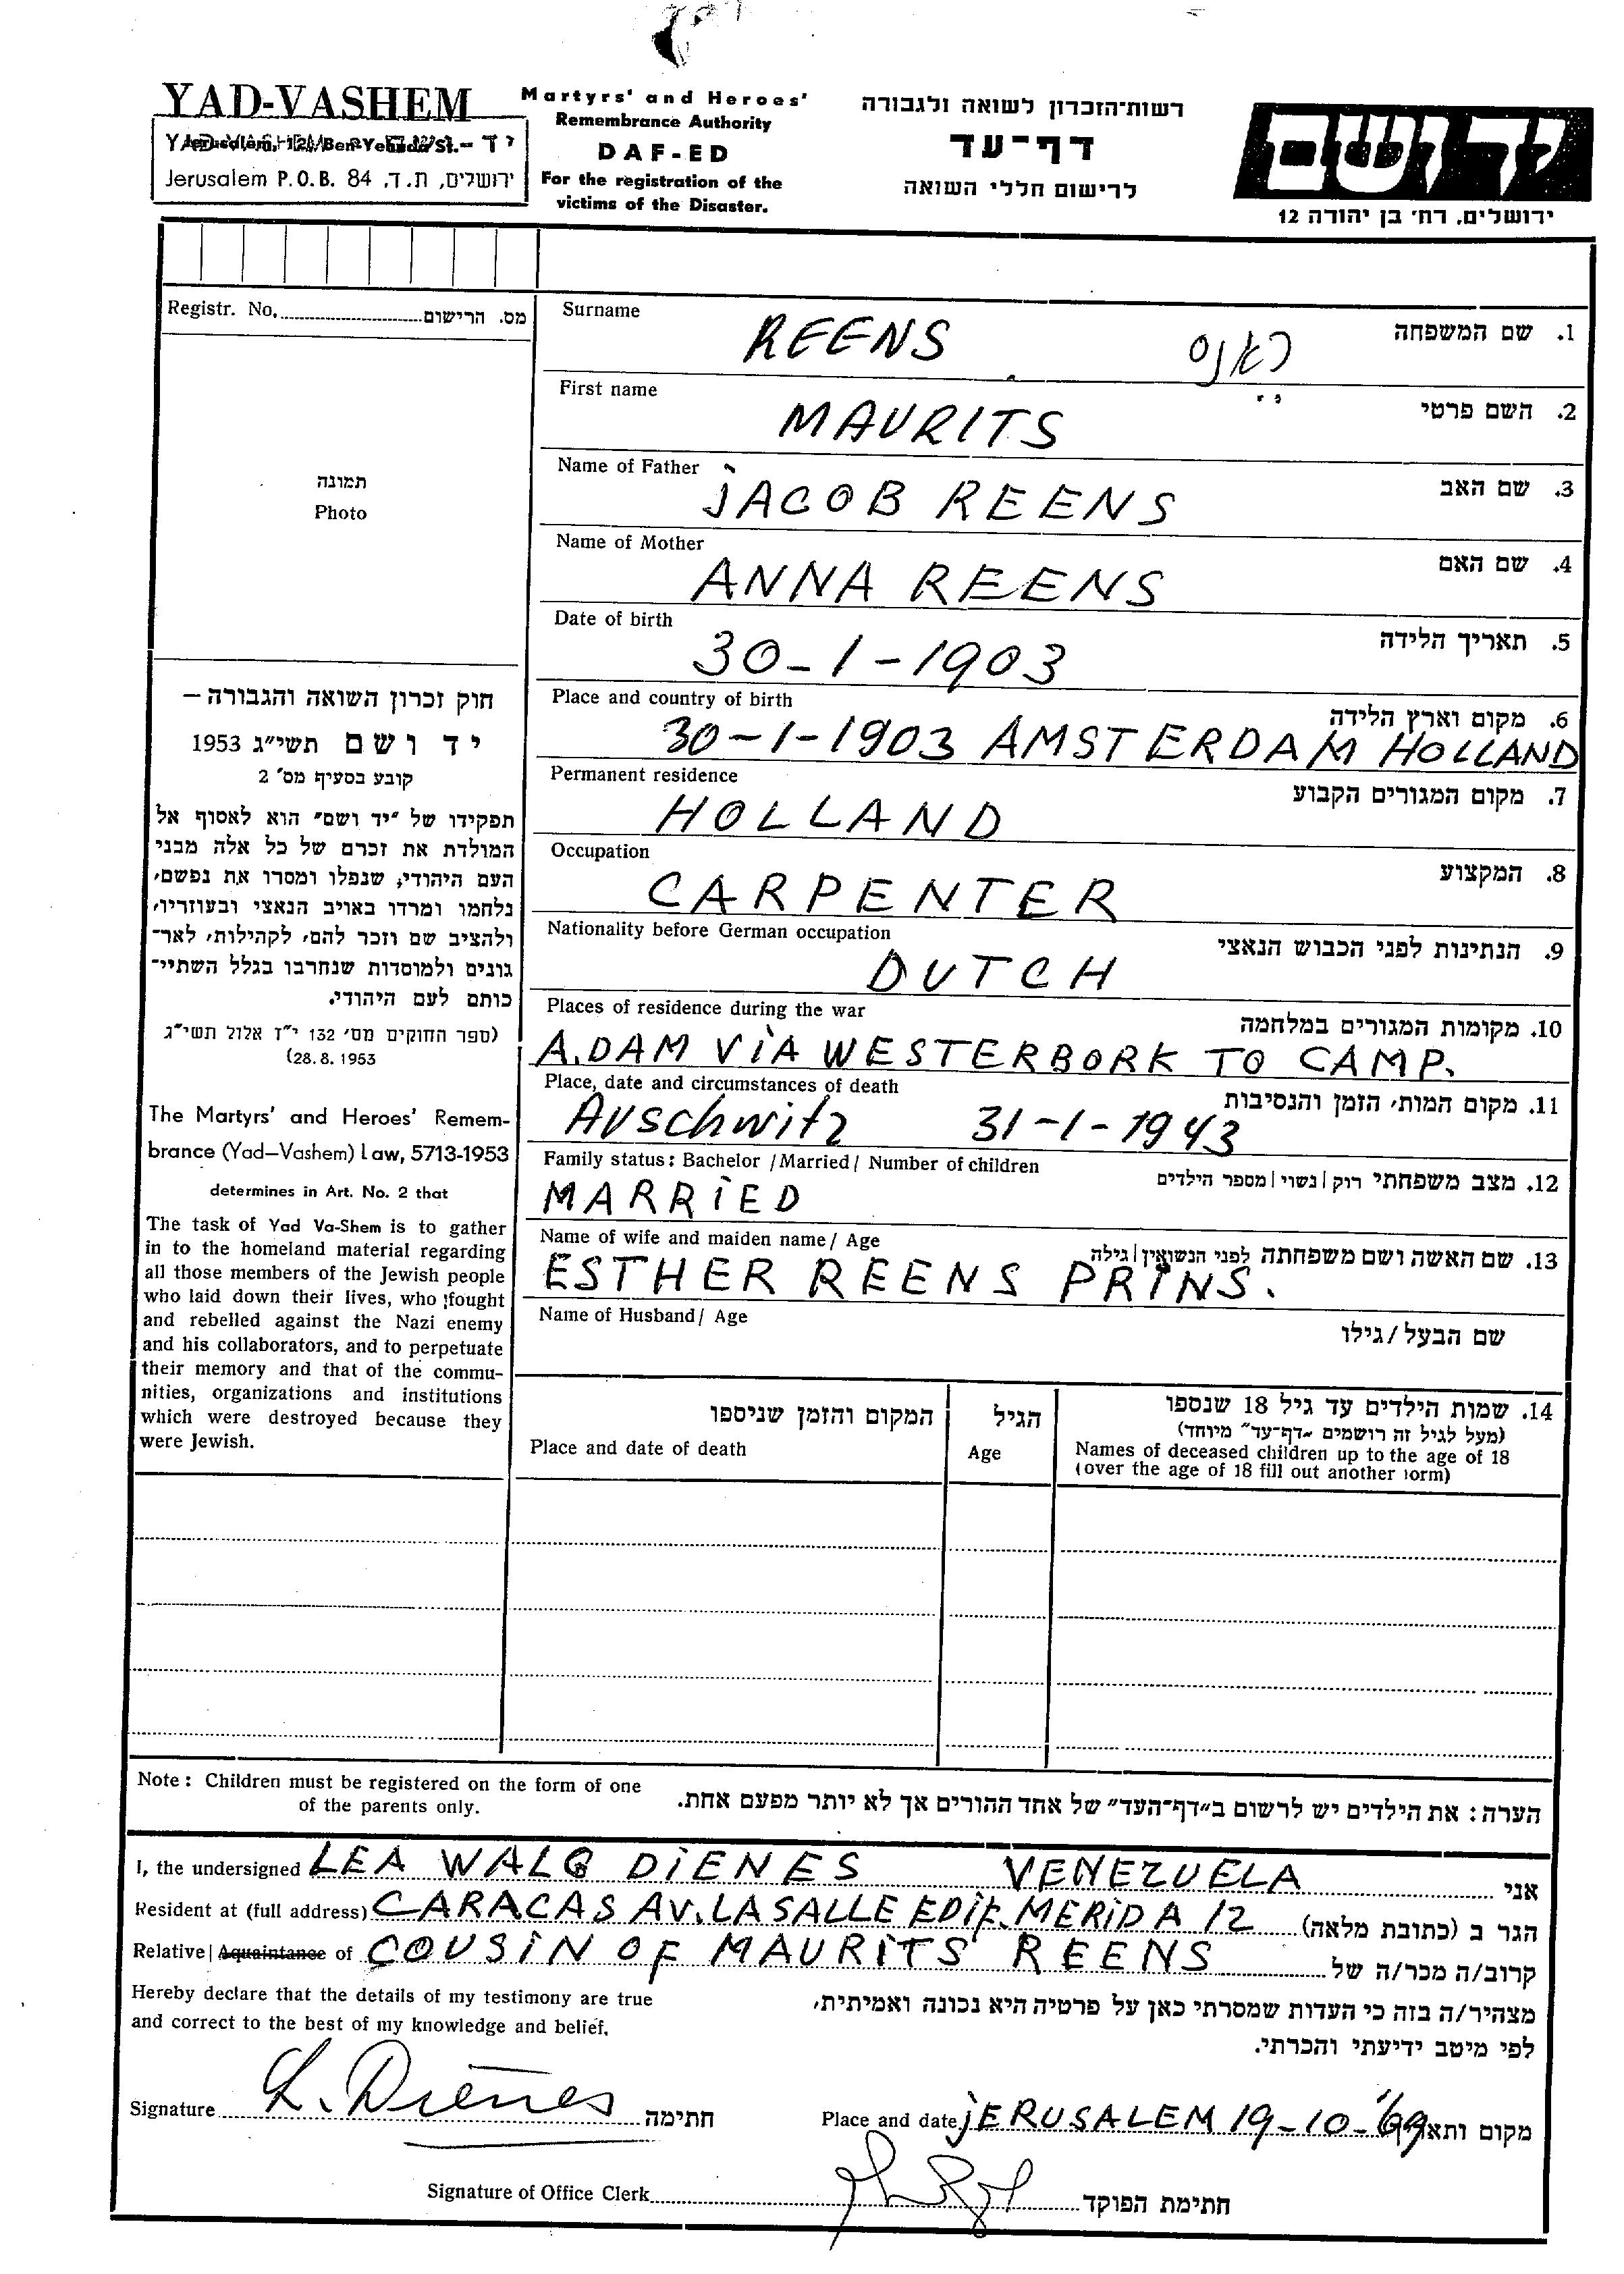 YAD-VASHEM
Jerusalem P.O.B. 84 ירושלים, ת.ד.
Martyrs' and Heroes'
Remembrance Authority
DAF-ED
For the registration of the
victims of the Disaster.
רשות-הזכרון לשואה ולגבורה
דף-עד
לרישום חללי השואה
יד ושם
ירושלים, רח' בן יהודה 12
Registr. No. מס. הרישום
תמונה
Photo
חוק זכרון השואה והגבורה –
יד ושם תשי"ג 1953
קובע בסעיף מס' 2
תפקידו של "יד ושם" הוא לאסוף אל
המולדת את זכרם של כל אלה מבני
העם היהודי, שנפלו ומסרו את נפשם,
נלחמו ומרדו באויב הנאצי ובעוזריו,
ולהציב שם וזכר להם, לקהילות, לאר-
גונים ולמוסדות שנחרבו בגלל השתיי-
כותם לעם היהודי.
(ספר החוקים מס' 132 י"ז אלול תשי"ג
(28.8.1953
The Martyrs' and Heroes' Remem-
brance (Yad–Vashem) Law, 5713-1953
determines in Art. No. 2 that
The task of Yad Va-Shem is to gather
in to the homeland material regarding
all those members of the Jewish people
who laid down their lives, who fought
and rebelled against the Nazi enemy
and his collaborators, and to perpetuate
their memory and that of the commu-
nities, organizations and institutions
which were destroyed because they
were Jewish.
Surname 1. שם המשפחה
REENS ראנס
First name 2. השם פרטי
MAURITS
Name of Father 3. שם האב
JACOB REENS
Name of Mother 4. שם האם
ANNA REENS
Date of birth 5. תאריך הלידה
30-1-1903
Place and country of birth 6. מקום וארץ הלידה
30-1-1903 AMSTERDAM HOLLAND
Permanent residence 7. מקום המגורים הקבוע
HOLLAND
Occupation 8. המקצוע
CARPENTER
Nationality before German occupation 9. הנתינות לפני הכבוש הנאצי
DUTCH
Places of residence during the war 10. מקומות המגורים במלחמה
A.DAM VIA WESTERBORK TO CAMP.
Place, date and circumstances of death 11. מקום המות, הזמן והנסיבות
AUschwitz 31-1-1943
Family status: Bachelor /Married/ Number of children 12. מצב משפחתי רוק/נשוי/מספר הילדים
MARRIED
Name of wife and maiden name/ Age 13. שם האשה ושם משפחתה לפני הנשואין/גילה
ESTHER REENS PRINS.
Name of Husband/ Age שם הבעל/גילו
14. שמות הילדים עד גיל 18 שנספו
(מעל לגיל זה רושמים "דף-עד" מיוחד)
Names of deceased children up to the age of 18
(over the age of 18 fill out another form)
הגיל
Age
המקום והזמן שניספו
Place and date of death
Note: Children must be registered on the form of one
of the parents only.
הערה: את הילדים יש לרשום ב"דף-העד" של אחד ההורים אך לא יותר מפעם אחת.
I, the undersigned LEA WALG DIENES VENEZUELA אני
Resident at (full address) CARACAS AV. LA SALLE EDIF. MERIDA 12 הגר ב (כתובת מלאה)
Relative/ Aquaintance of COUSIN OF MAURITS REENS קרוב/ה מכר/ה של
Hereby declare that the details of my testimony are true
and correct to the best of my knowledge and belief.
מצהיר/ה בזה כי העדות שמסרתי כאן על פרטיה היא נכונה ואמיתית,
לפי מיטב ידיעתי והכרתי.
Signature L. Dienes חתימה
Place and date JERUSALEM 19-10-'69 מקום ותאריך
Signature of Office Clerk חתימת הפוקד